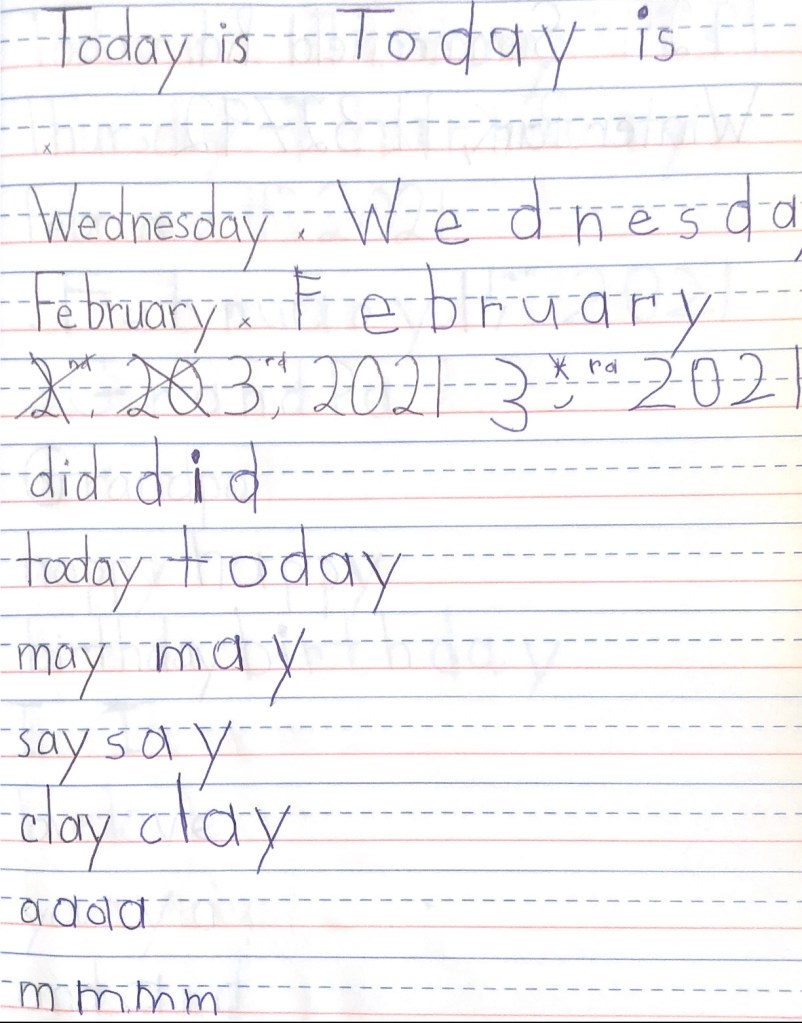 Today is Today is
x
Wednesday. Wednesday
February x February
2nd, 20 3rd, 2021 3rd, 2021
did did
today today
may may
say say
clay clay
a a a a
m m m m